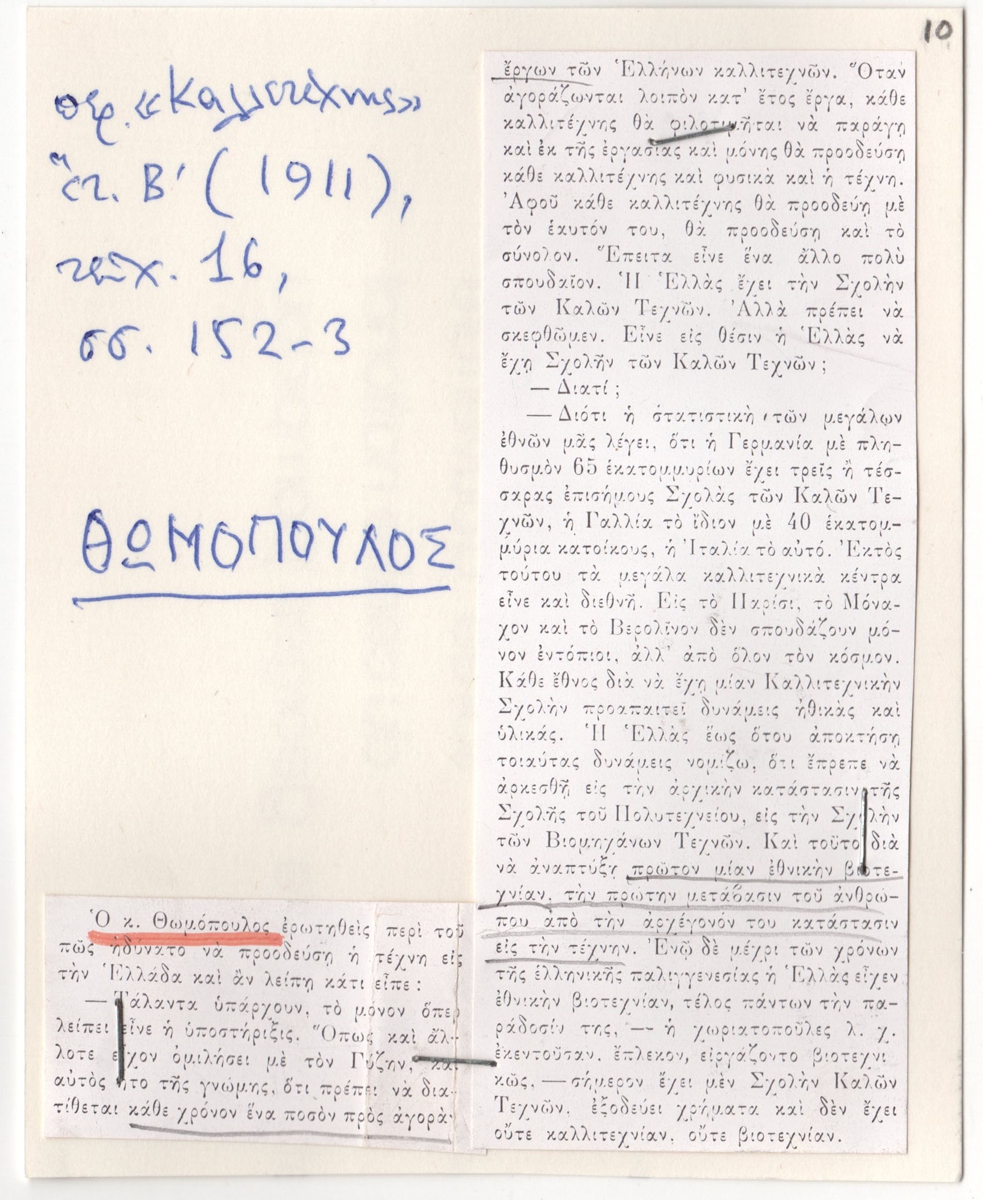 10
περ. «Καλλιτέχνης»
ἔτ. Β' (1911),
τεῦχ. 16,
σσ. 152-3
ΘΩΜΟΠΟΥΛΟΣ
Ὁ κ. Θωμόπουλος ἐρωτηθεὶς περὶ τοῦ
πῶς ἠδύνατο νὰ προοδεύσῃ ἡ τέχνη εἰς
τὴν Ἑλλάδα καὶ ἂν λείπῃ κάτι εἶπε:
— Τάλαντα ὑπάρχουν, τὸ μόνον ὅπερ
λείπει εἶνε ἡ ὑποστήριξις. Ὅπως καὶ ἄλ-
λοτε εἶχον ὁμιλήσει μὲ τὸν Γύζην, καὶ
αὐτὸς ἦτο τῆς γνώμης, ὅτι πρέπει νὰ δια-
τίθεται κάθε χρόνον ἕνα ποσὸν πρὸς ἀγορὰν
ἔργων τῶν Ἑλλήνων καλλιτεχνῶν. Ὅταν
ἀγοράζωνται λοιπὸν κατ' ἔτος ἔργα, κάθε
καλλιτέχνης θὰ φιλοτιμῆται νὰ παράγῃ
καὶ ἐκ τῆς ἐργασίας καὶ μόνης θὰ προοδεύσῃ
κάθε καλλιτέχνης καὶ φυσικὰ καὶ ἡ τέχνη.
Ἀφοῦ κάθε καλλιτέχνης θὰ προοδεύῃ μὲ
τὸν ἑαυτόν του, θὰ προοδεύσῃ καὶ τὸ
σύνολον. Ἔπειτα εἶνε ἕνα ἄλλο πολὺ
σπουδαῖον. Ἡ Ἑλλὰς ἔχει τὴν Σχολὴν
τῶν Καλῶν Τεχνῶν. Ἀλλὰ πρέπει νὰ
σκεφθῶμεν. Εἶνε εἰς θέσιν ἡ Ἑλλὰς νὰ
ἔχῃ Σχολὴν τῶν Καλῶν Τεχνῶν;
— Διατί;
— Διότι ἡ στατιστικὴ τῶν μεγάλων
ἐθνῶν μᾶς λέγει, ὅτι ἡ Γερμανία μὲ πλη-
θυσμὸν 65 ἑκατομμυρίων ἔχει τρεῖς ἢ τέσ-
σαρας ἐπισήμους Σχολὰς τῶν Καλῶν Τε-
χνῶν, ἡ Γαλλία τὸ ἴδιον μὲ 40 ἑκατομ-
μύρια κατοίκους, ἡ Ἰταλία τὸ αὐτό. Ἐκτὸς
τούτου τὰ μεγάλα καλλιτεχνικὰ κέντρα
εἶνε καὶ διεθνῆ. Εἰς τὸ Παρίσι, τὸ Μόνα-
χον καὶ τὸ Βερολῖνον δὲν σπουδάζουν μό-
νον ἐντόπιοι, ἀλλ' ἀπὸ ὅλον τὸν κόσμον.
Κάθε ἔθνος διὰ νὰ ἔχῃ μίαν Καλλιτεχνικὴν
Σχολὴν προαπαιτεῖ δυνάμεις ἠθικὰς καὶ
ὑλικάς. Ἡ Ἑλλὰς ἕως ὅτου ἀποκτήσῃ
τοιαύτας δυνάμεις νομίζω, ὅτι ἔπρεπε νὰ
ἀρκεσθῇ εἰς τὴν ἀρχικὴν κατάστασιν τῆς
Σχολῆς τοῦ Πολυτεχνείου, εἰς τὴν Σχολὴν
τῶν Βιομηχάνων Τεχνῶν. Καὶ τοῦτο διὰ
νὰ ἀναπτύξῃ πρῶτον μίαν ἐθνικὴν βιοτε-
χνίαν, τὴν πρώτην μετάβασιν τοῦ ἀνθρώ-
που ἀπὸ τὴν ἀρχέγονόν του κατάστασιν
εἰς τὴν τέχνην. Ἐνῷ δὲ μέχρι τῶν χρόνων
τῆς ἑλληνικῆς παλιγγενεσίας ἡ Ἑλλὰς εἶχεν
ἐθνικὴν βιοτεχνίαν, τέλος πάντων τὴν πα-
ράδοσίν της, — ἡ χωριατοπούλες λ. χ.
ἐκεντοῦσαν, ἔπλεκον, εἰργάζοντο βιοτεχνι
κῶς, — σήμερον ἔχει μὲν Σχολὴν Καλῶν
Τεχνῶν, ἐξοδεύει χρήματα καὶ δὲν ἔχει
οὔτε καλλιτεχνίαν, οὔτε βιοτεχνίαν.